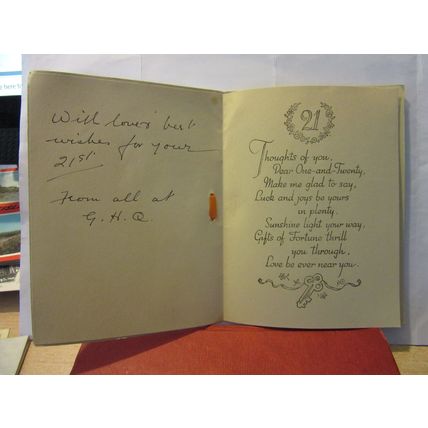 With love & best
wishes for your
21st.
From all at
G.H.Q.
21
Thoughts of you,
Dear One-and-Twenty,
Make me glad to say,
Luck and joys be yours
in plenty.
Sunshine light your way,
Gifts of Fortune thrill
you through,
Love be ever near you.